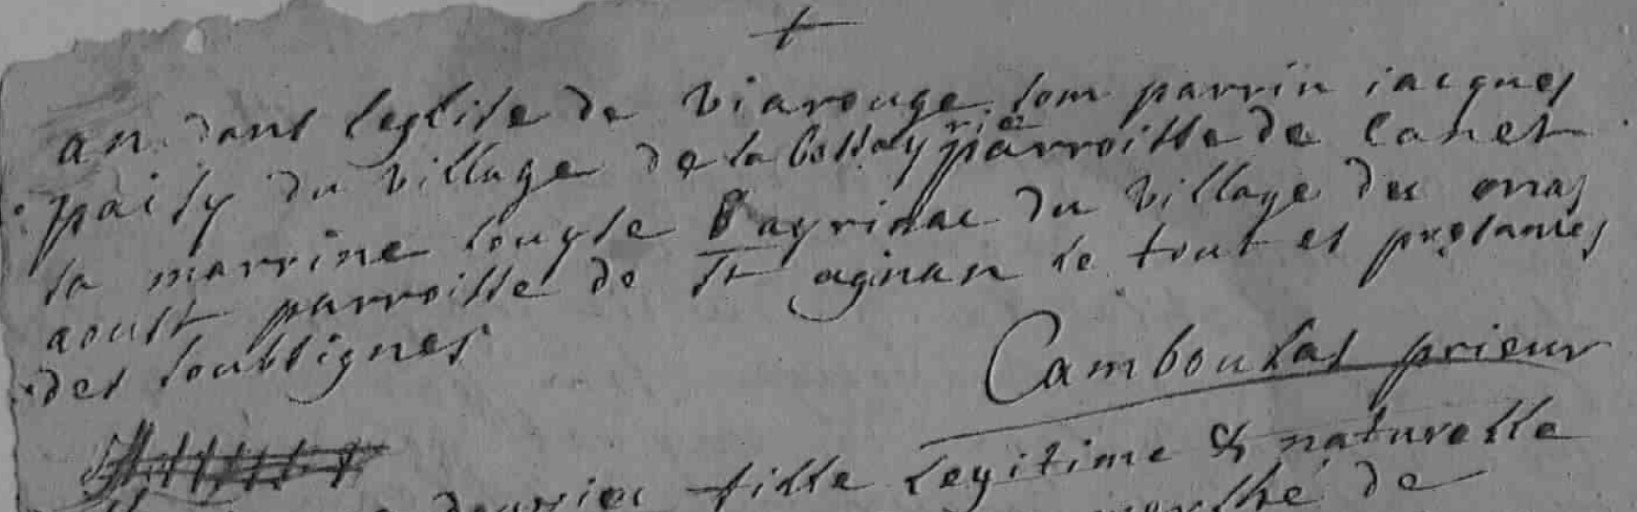 an dans leglise de viarouge som parrin iacques
paisy du village de la parroisse de canet
sa marrine Bayrinac du village du mas
aoust parroisse de St aginan le tout et presances
des soubsignes
Camboulas prieur
fille legitime & naturelle
de